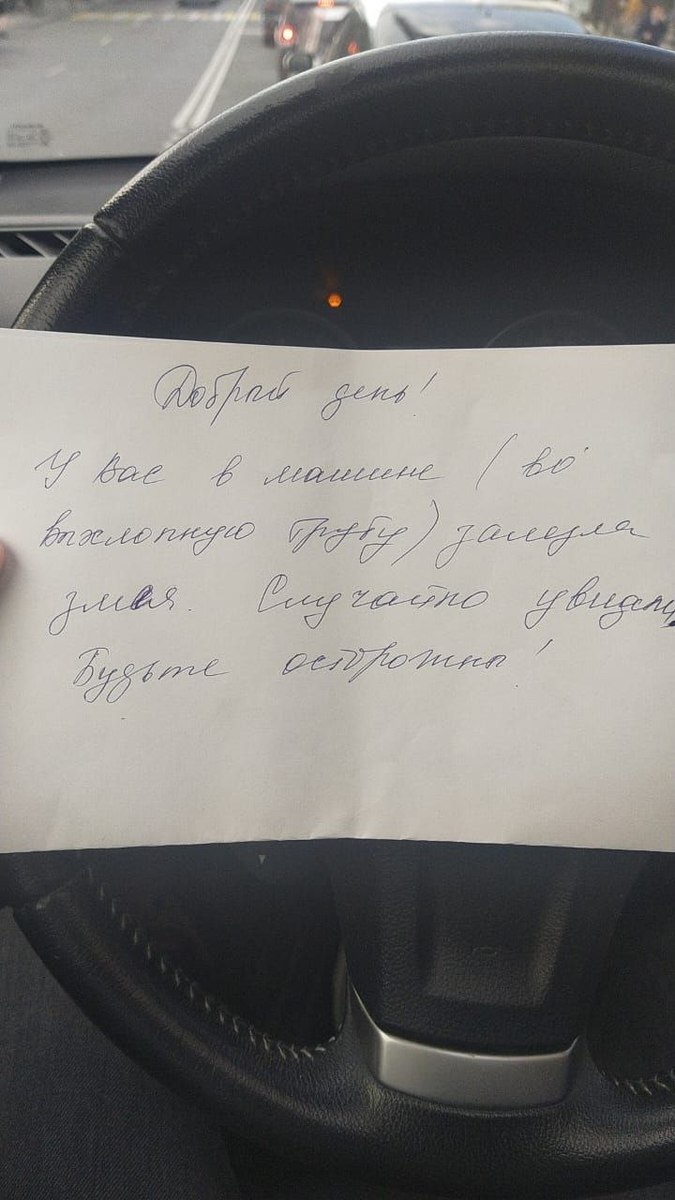 Добрый день!
У Вас в машине (во
выхлопную трубу) залезла
змея. Случайно увидали
Будьте осторожны!